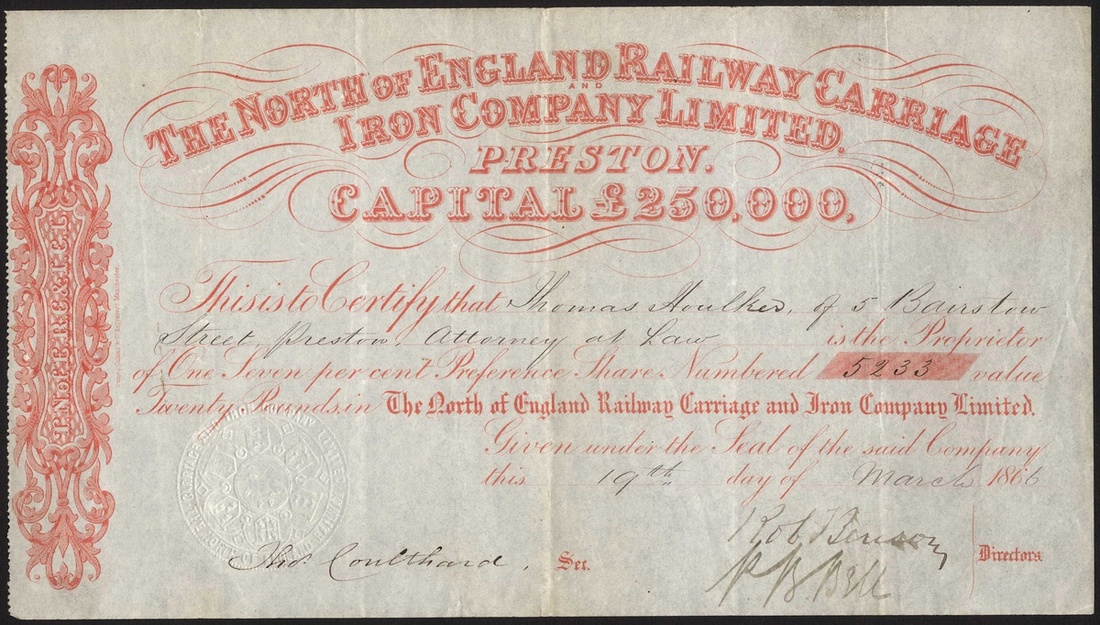 THE NORTH OF ENGLAND RAILWAY CARRIAGE
AND
IRON COMPANY LIMITED.
PRESTON.
CAPITAL £250,000,
This is to Certify that Thomas Houlker, of 5 Bairstow
Street, Preston, Attorney at Law is the Proprietor
of One Seven per cent Preference Share Numbered 5233 value
Twenty Pounds, in The North of England Railway Carriage and Iron Company Limited.
Given under the Seal of the said Company
this 19th day of March 1866
Thos. Coulthard, Sec.
Robt Benson
P. B. Bell
Directors